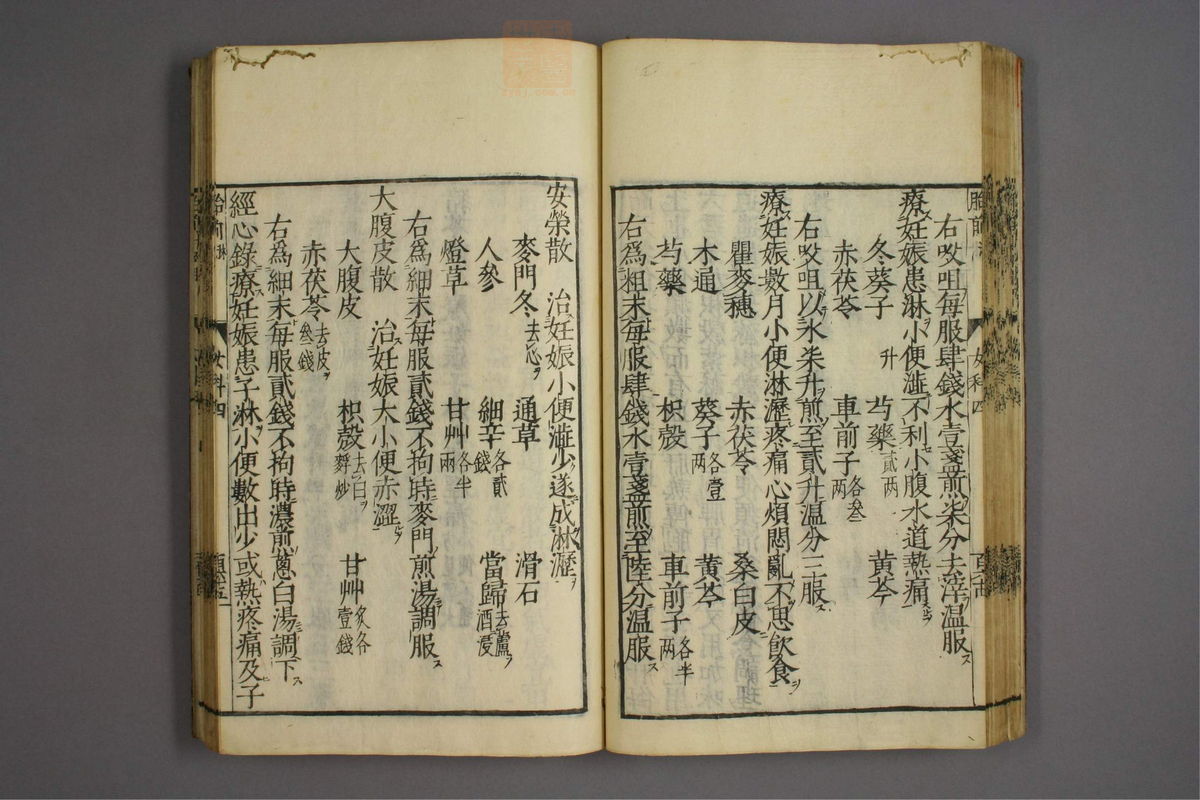 右㕮咀每服肆錢水壹盞煎柒分去滓温服ス
療ス妊娠患淋ヲ小便澁不利小腹水道熱痛ヲ
冬葵子升 芍藥貳两 黄芩
赤茯苓 車前子各叁两
右㕮咀以水柒升煎至貳升温分三服ス
療ス妊娠數月小便淋瀝疼痛心煩悶亂不思飲食ヲ
瞿麥穗 赤茯苓 桑白皮
木通 葵子各壹两 黄芩
芍藥 枳殻 車前子各半两
右爲粗末每服肆錢水壹盞煎至陸分温服ス
安榮散 治妊娠小便澁少遂成淋瀝ヲ
麥門冬去心ヲ 通草 滑石
人參 細辛各貳錢 當歸去蘆ヲ酒浸
燈草 甘艸各半兩
右爲細末每服貳錢不拘時麥門煎湯調服ス
大腹皮散 治ス妊娠大小便赤澀ヲ
大腹皮 枳殻去白ヲ麩炒 甘艸炙各壹錢
赤茯苓去皮ヲ叁錢
右爲細末每服貳錢不拘時濃煎蔥白湯調下ス
經心錄療ス妊娠患子淋小便數出少或熱疼痛及子
女科四
女科四